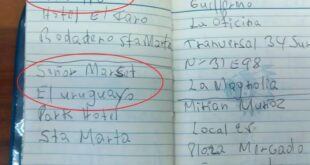 Hotel El Faro
Rodadero Sta Marta
Señor Marset
El uruguayo
Park Hotel
Sta Marta
Guillermo
La Oficina
Tranversal 34 Sur
Nº 31 E98
La Magnolia
Mirian Muñoz
Local
Plaza Mercado